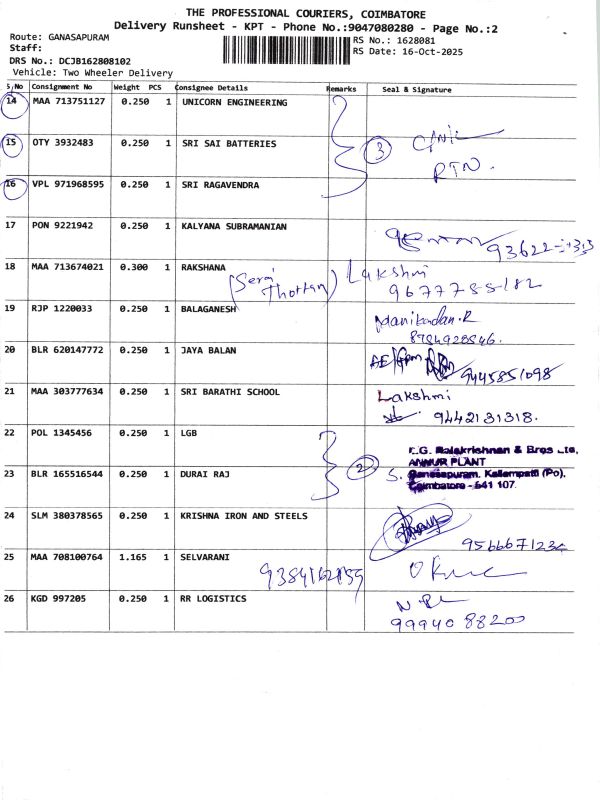 THE PROFESSIONAL COURIERS, COIMBATORE
Delivery Runsheet - KPT - Phone No.:9047080280 - Page No.:2
Route: GANASAPURAM
RS No.: 1628081
Staff:
RS Date: 16-Oct-2025
DRS No.: DCJB162808102
Vehicle: Two Wheeler Delivery
S.No Consignment No Weight PCS Consignee Details Remarks Seal & Signature
14 MAA 713751127 0.250 1 UNICORN ENGINEERING
15 OTY 3932483 0.250 1 SRI SAI BATTERIES 3
RTN.
16 VPL 971968595 0.250 1 SRI RAGAVENDRA
17 PON 9221942 0.250 1 KALYANA SUBRAMANIAN
18 MAA 713674021 0.300 1 RAKSHANA (Serai Thottam) Lakshmi
19 RJP 1220033 0.250 1 BALAGANESH Manikandan.R
20 BLR 620147772 0.250 1 JAYA BALAN
9445851098
21 MAA 303777634 0.250 1 SRI BARATHI SCHOOL Lakshmi
9442131318.
22 POL 1345456 0.250 1 LGB
L.G. Balakrishnan & Bros Ltd,
ANNUR PLANT
2 S. Ganesapuram, Kallampatti (Po),
Coimbatore - 641 107.
23 BLR 165516544 0.250 1 DURAI RAJ
24 SLM 380378565 0.250 1 KRISHNA IRON AND STEELS
9566671234
25 MAA 708100764 1.165 1 SELVARANI
26 KGD 997205 0.250 1 RR LOGISTICS
9994088200